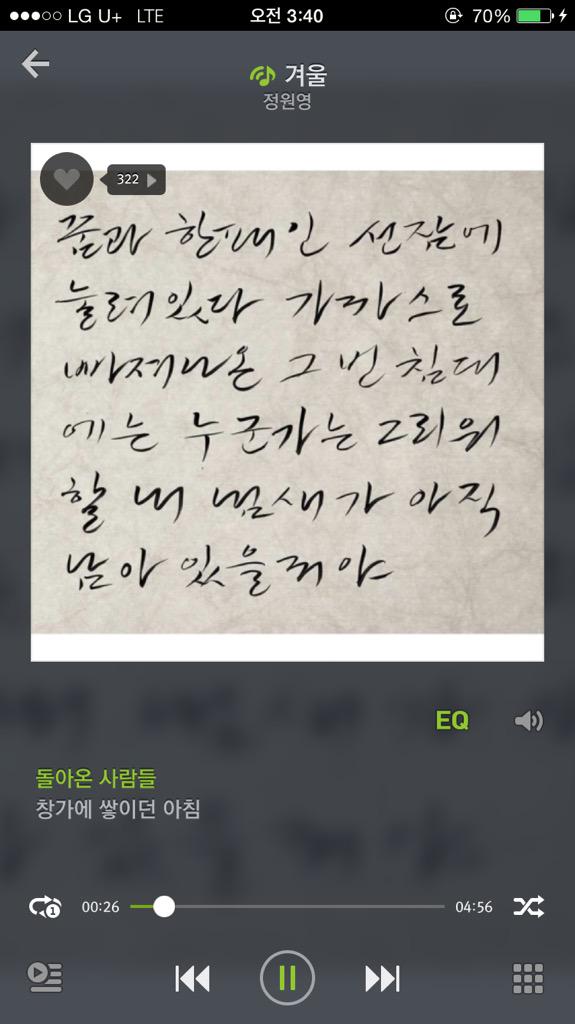 LG U+ LTE 오전 3:40 70%
겨울
정원영
322
꿈과 한패인 선잠에
눌려있다 가까스로
빠져나온 그 빈 침대
에는 누군가는 그리워
할 내 냄새가 아직
남아 있을거야
EQ
돌아온 사람들
창가에 쌓이던 아침
1
00:26 04:56